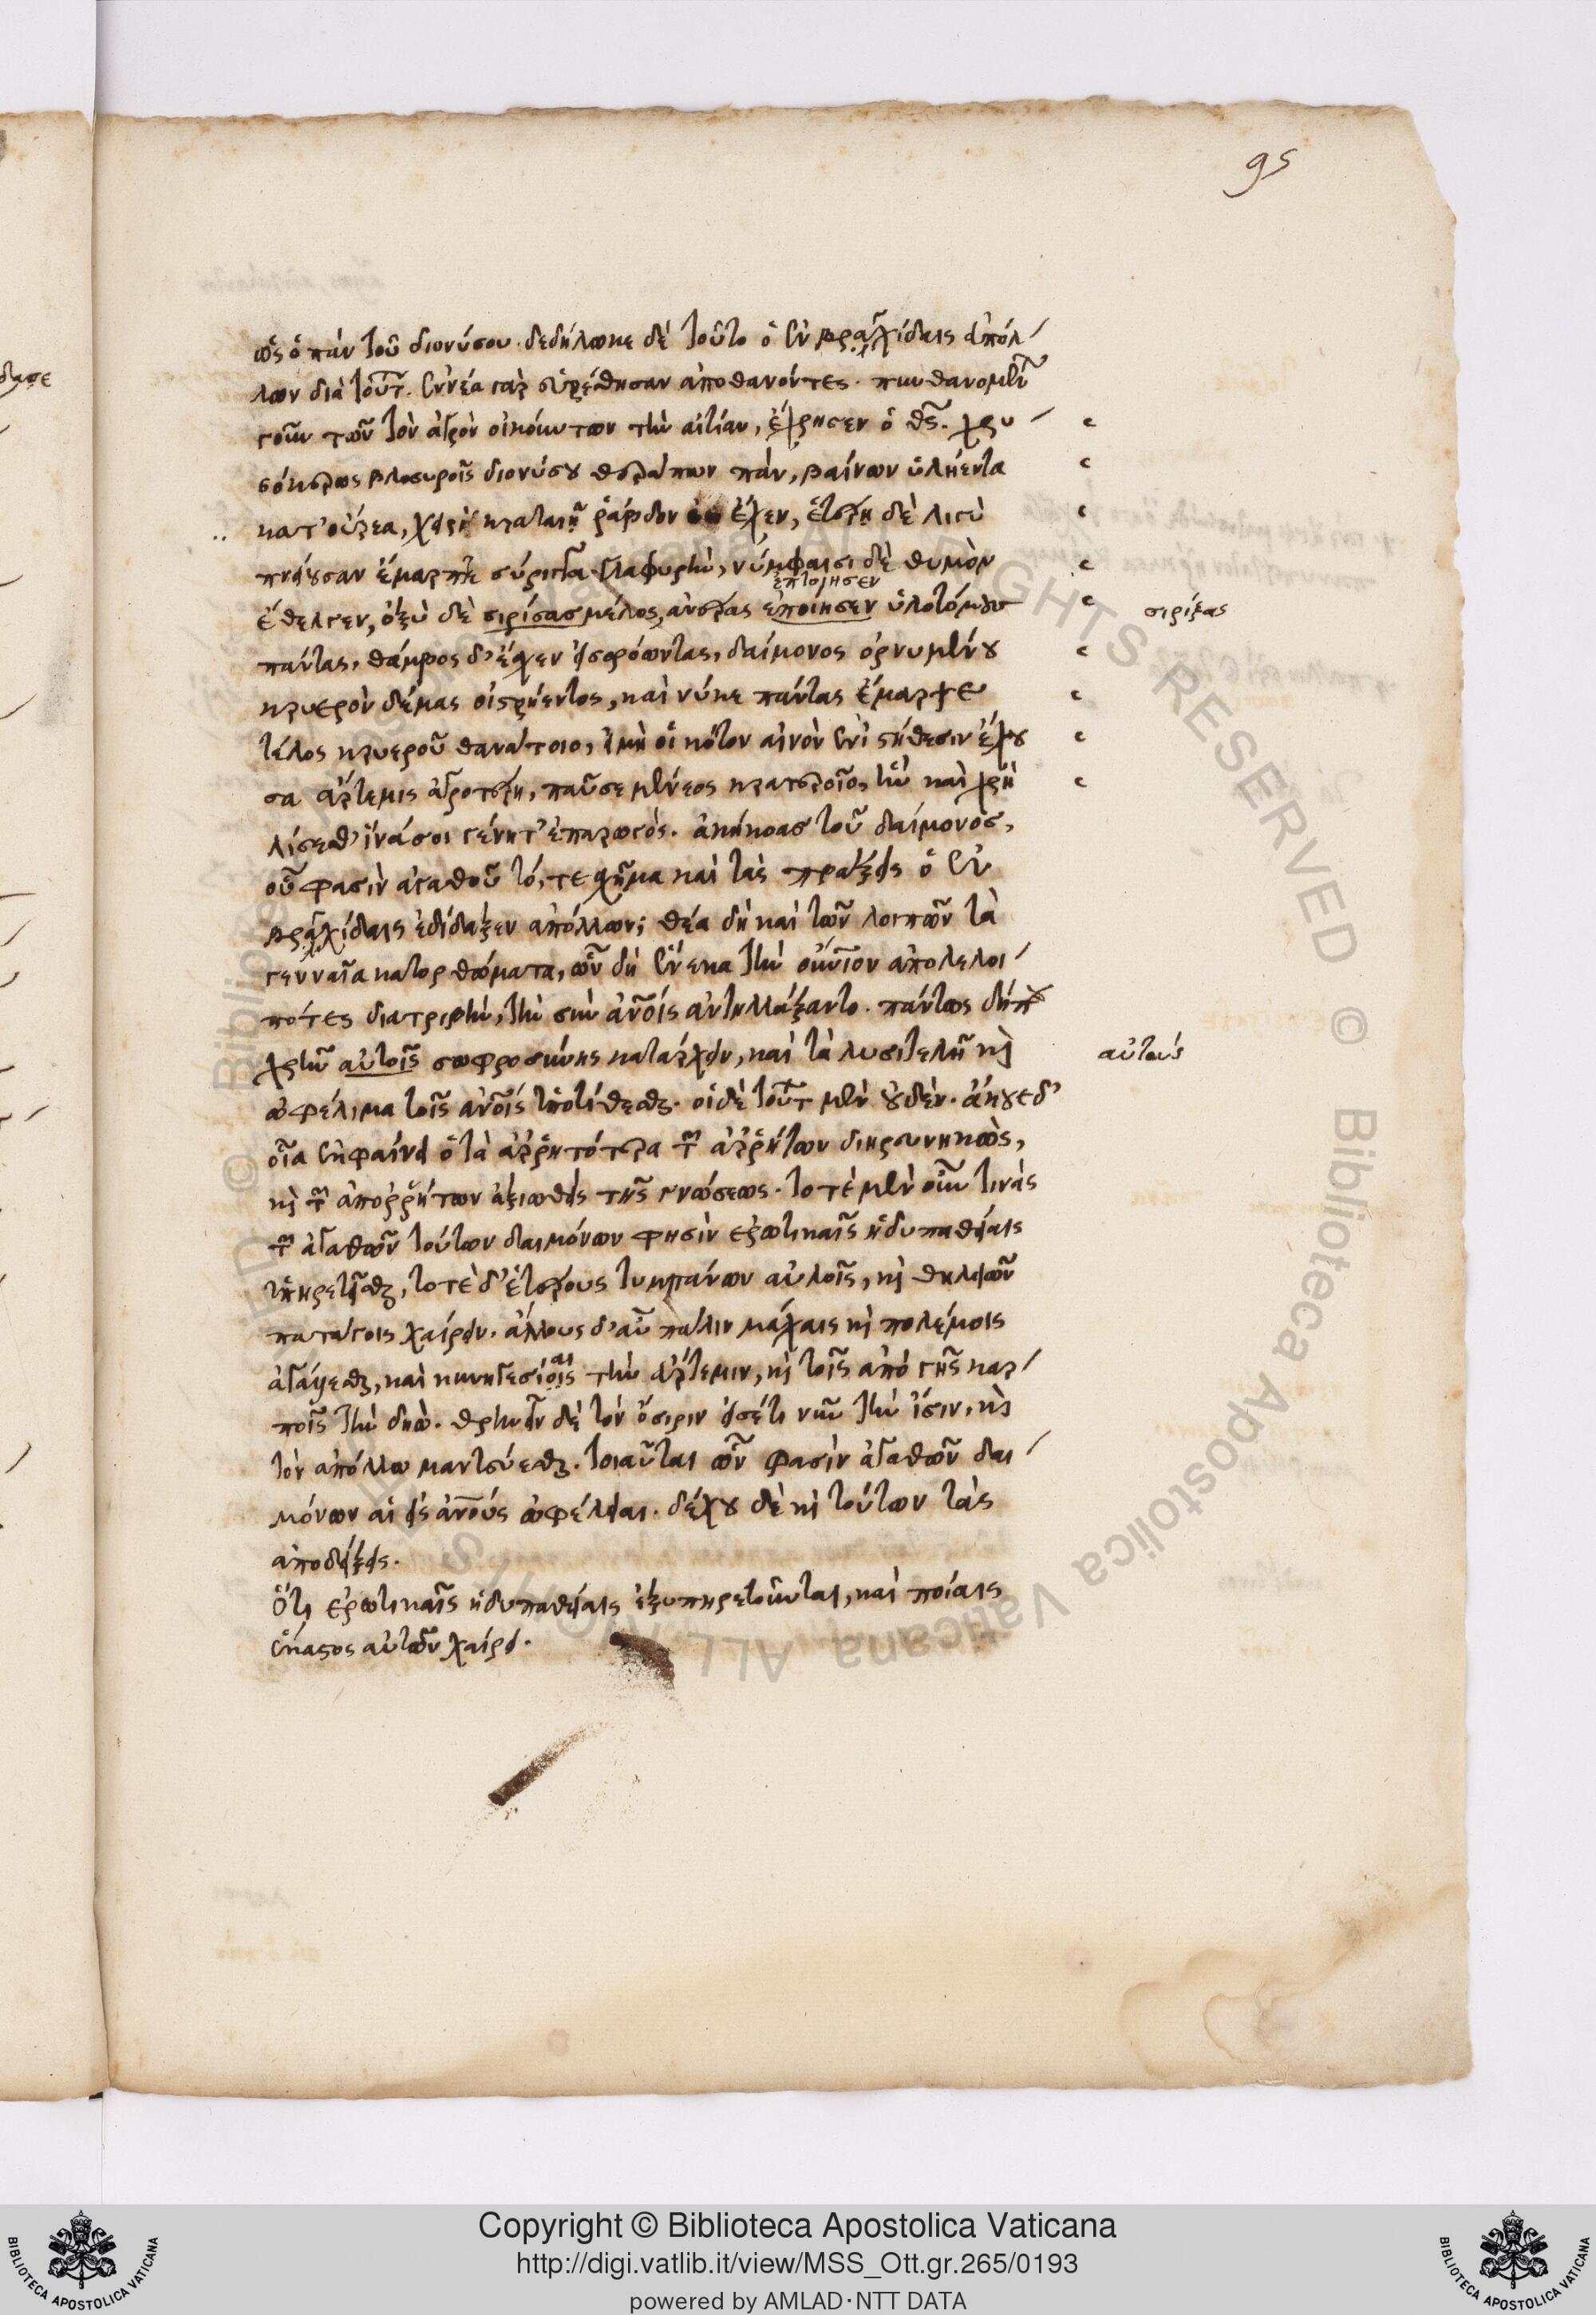 95
ὡς ὁ πὰν τοῦ διονύσου. δεδήλωκε δὲ τοῦτο ὁ ἐν βραγχίδαις ἀπόλ
λων διὰ τούτ. ἐννέα γὰρ εὑρέθησαν ἀποθανόντες. πυνθανομέν
γοῦν τῶν τὸν ἀγρὸν οἰκούντων τὴν αἰτίαν, ἔχρησεν ὁ θς. χρυ
σόκερως βλοσυροῖς διονύσου θεράπων πὰν, βαίνων ὑλήεντα
κατ' οὔρεα, χειρὶ κραταιῇ ῥάβδον ἔχεν, ἑτέρῃ δὲ λιγὺ
πνείουσαν ἔμαρπτε σύριγγα γλαφυρὴν, νύμφαισι δὲ θυμὸν
ἐπτοίησεν
ἔθελγεν, ὀξὺ δὲ συρίσας μέλος, ἀνέρας ἐποίησεν ὑλοτόμους
συρίξας
πάντας, θάμβος δ' ἔχεν εἰσορόωντας, δαίμονος ὀρνυμένου
κρυερὸν δέμας οἰστρήεντος, καὶ νύκε πάντας ἔμαρψε
τέλος κρυεροῦ θανάτοιο, εἰ μή οἱ κότον αἰνὸν ἐνὶ στήθεσιν ἔχου
σα ἄρτεμις ἀγροτέρη, παῦσε μένεος κρατεροῖο, ἣν καὶ χρὴ
λίσσεσθ' ἵνά σοι γένητ' ἐπαρωγός. ἀκήκοας τοῦ δαίμονος,
οὗ φασὶν ἀγαθοῦ τό, τε σχῆμα καὶ τὰς πράξεις ὁ ἐν
βραγχίδαις ἐδίδαξεν ἀπόλλων; θέα δὴ καὶ τῶν λοιπῶν τὰ
γενναῖα κατορθώματα, ὧν δὴ ἕνεκα τὴν οὐνιον ἀπολελοι
πότες διατριβὴν, τὴν σὺν ἀνοις ἀντηλλάξαντο. πάντως δήπου
χρῆν αὐτοῖς σωφροσύνης κατάρχειν, καὶ τὰ λυσιτελῆ καὶ
αὐτοὺς
ὠφέλιμα τοῖς ἀνοις ὑποτίθεσθαι. οἱ δὲ τούτ μὲν οὐδέν. ἄκουε δ'
οἷα ἐκφαίνει ὁ τὰ ἀρρητότερα τῶν ἀρρήτων διηρευνηκὼς,
καὶ τῶν ἀπορρήτων ἀξιωθεὶς τῆς γνώσεως. τοτὲ μὲν οὖν τινὰς
τῶν ἀγαθῶν τούτων δαιμόνων φησὶν ἐρωτικαῖς ἡδυπαθείαις
ὑπηρετεῖσθαι, τοτὲ δ' ἑτέρους τυμπάνων αὐλοῖς, καὶ θηλειῶν
πατάγοις χαίρειν. ἄλλους δ' αὖ πάλιν μάχαις καὶ πολέμοις
ἀγάγεσθαι, καὶ κυνηγεσίοις αι τὴν ἄρτεμιν, καὶ τοῖς ἀπὸ γῆς καρ
ποῖς τὴν δηώ. θρηνεῖν δὲ τὸν ὄσιριν εἰσέτι νῦν τὴν ἴσιν, καὶ
τὸν ἀπόλλω μαντεύεσθαι. τοιαῦται ὧν φασὶν ἀγαθῶν δαι
μόνων αἱ εἰς ἀνους ὠφέλειαι. δέχου δὲ καὶ τούτων τὰς
ἀποδείξεις.
Ὅτι ἐρωτικαῖς ἡδυπαθείαις ἐξυπηρετοῦνται, καὶ ποίαις
ἕκαστος αὐτῶν χαίρει.
Copyright © Biblioteca Apostolica Vaticana
http://digi.vatlib.it/view/MSS_Ott.gr.265/0193
powered by AMLAD·NTT DATA